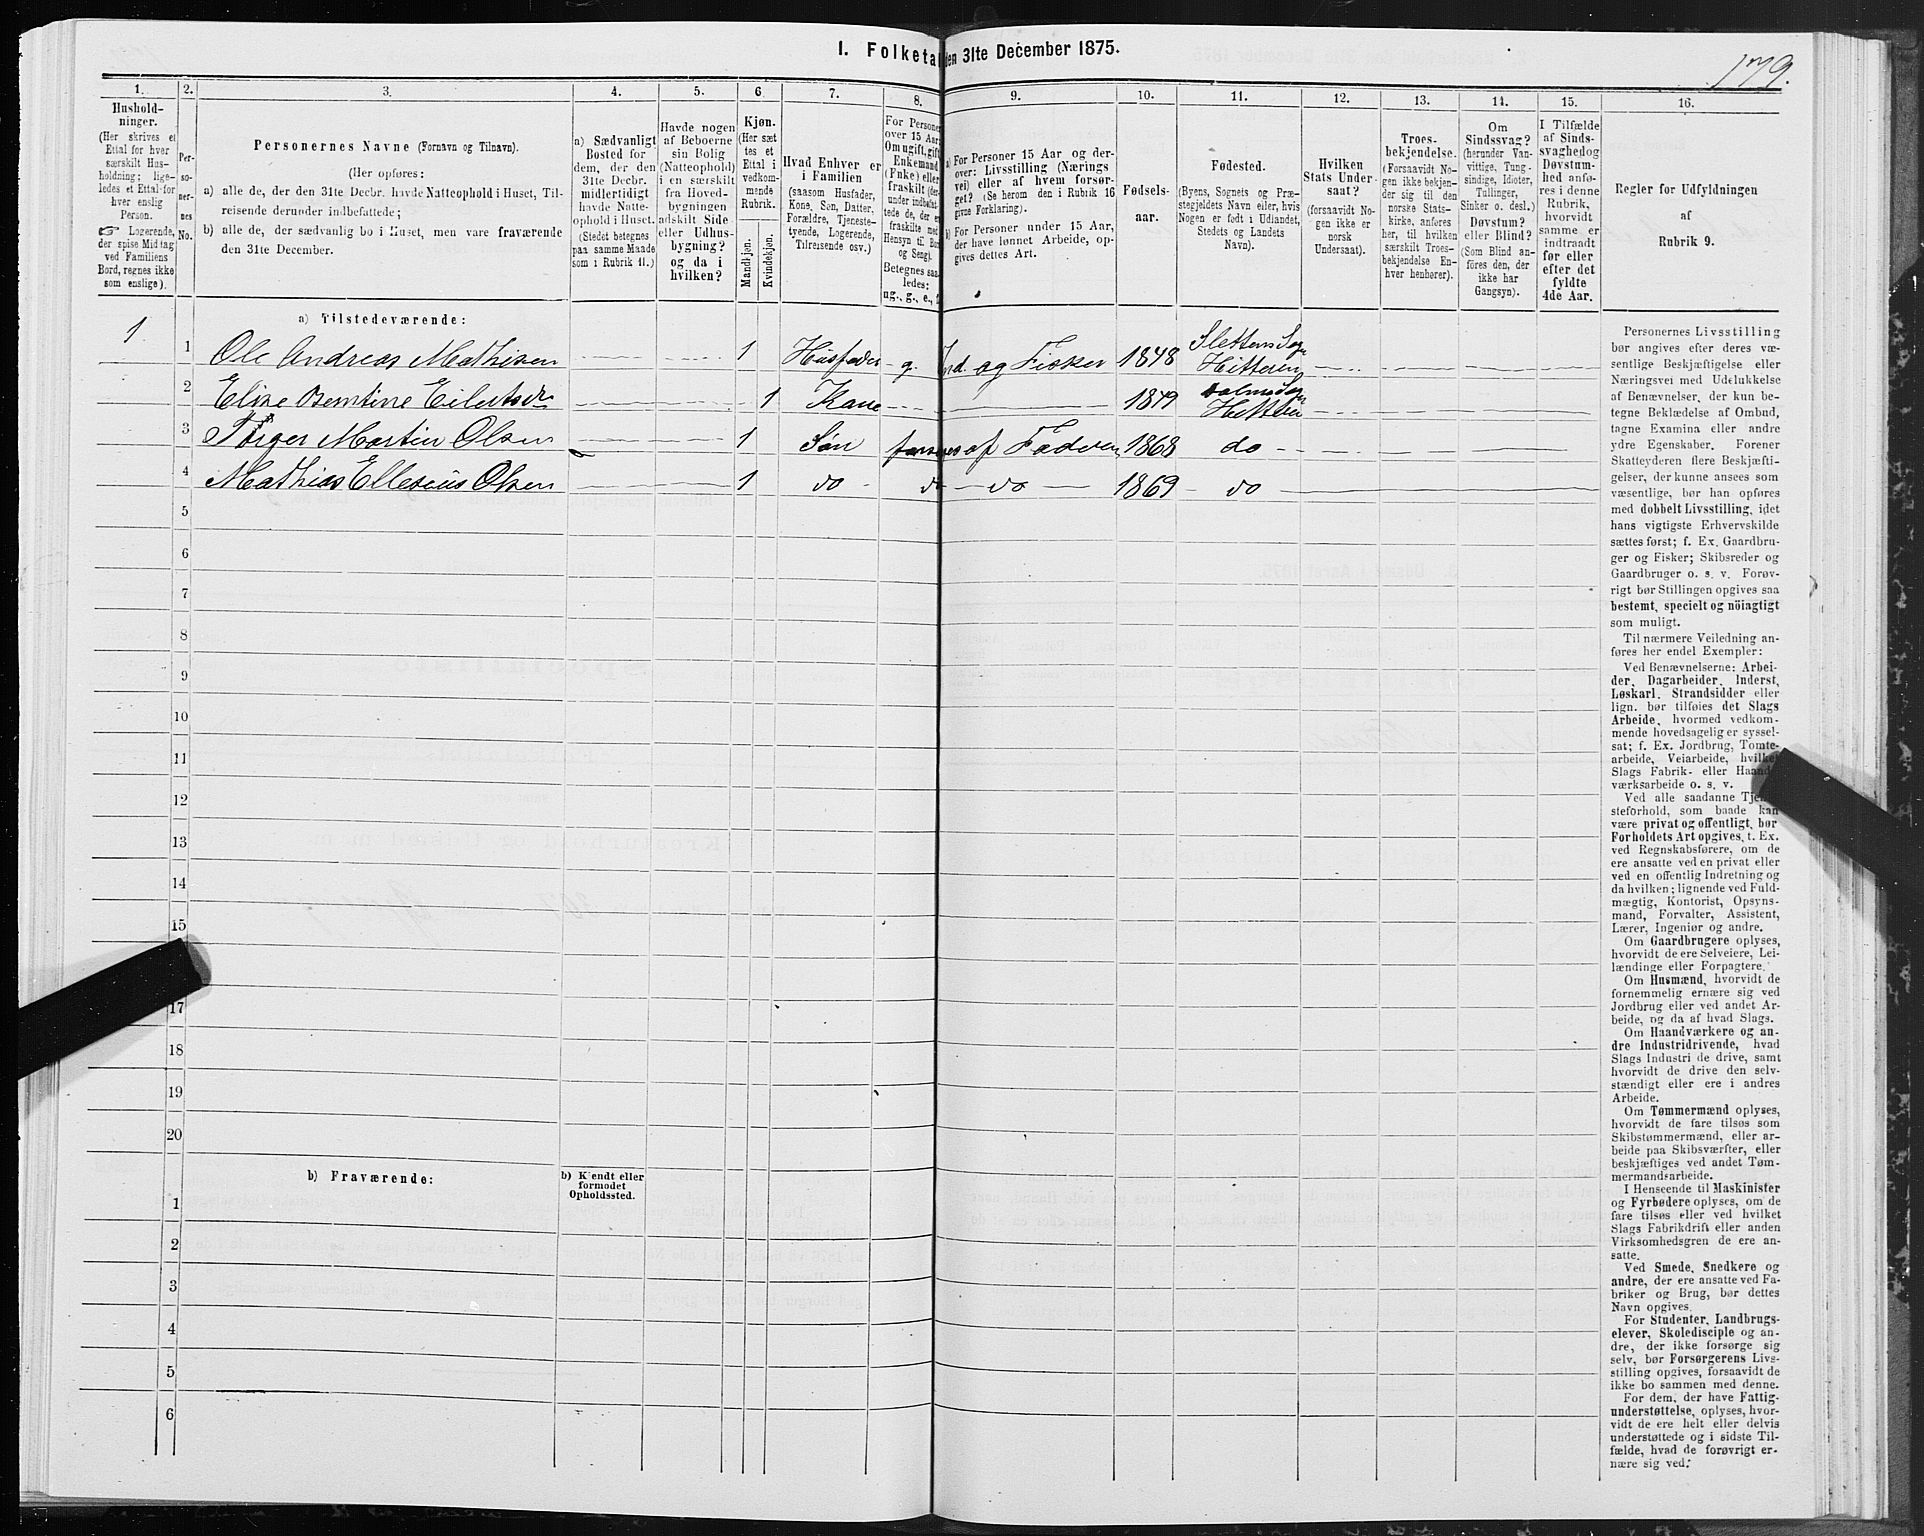 I. Folketal den 31te December 1875.
179.
1.
Hushold-
ninger.
(Her skrives et
Ettal for hver
særskilt Hus-
holdning; lige-
ledes et Ettal for
hver enslig
Person.
Logerende,
der spise Middag
ved Familiens
Bord, regnes ikke
som enslige).
2.
Per-
so-
ner-
nes
No.
3.
Personernes Navne (Fornavn og Tilnavn).
(Her opføres:
a) alle de, der den 31te Decbr. havde Natteophold i Huset, Til-
reisende derunder indbefattede;
b) alle de, der sædvanlig bo i Huset, men vare fraværende
den 31te December.
4.
a) Sædvanligt
Bosted for
dem, der den
31te Decbr.
midlertidigt
havde Natte-
ophold i Huset.
(Stedet betegnes
paa samme Maade
som i Rubrik 11.)
5.
Havde nogen
af Beboerne
sin Bolig
(Natteophold)
i en særskilt
fra Hoved-
bygningen
adskilt Side-
eller Udhus-
bygning?
og da i
hvilken?
6.
Kjøn.
(Her sæt-
tes et
Ettal i
vedkom-
mende
Rubrik.
Mandkjøn.
Kvindekjøn.
7.
Hvad Enhver er
i Familien
(saasom Husfader,
Kone, Søn, Datter,
Forældre, Tjeneste-
tyende, Logerende,
Tilreisende osv.)
8.
For Personer
over 15 Aar:
Om ugift, gift,
Enkemand
(Enke) eller
fraskilt (der-
under indbefat-
tede de, der ere
fraskilte med
Hensyn til Bord
og Seng).
Betegnes saa-
ledes:
ug., g., e., f.
9.
a) For Personer 15 Aar og der-
over: Livsstilling (Nærings-
vei) eller af hvem forsør-
get? (Se herom den i Rubrik 16
givne Forklaring).
b) For Personer under 15 Aar,
der have lønnet Arbeide, op-
gives dettes Art.
10.
Fødsels-
aar.
11.
Fødested.
(Byens, Sognets og Præ-
stegjeldets Navn eller, hvis
Nogen er født i Udlandet,
Stedets og Landets
Navn).
12.
Hvilken
Stats Under-
saat?
(forsaavidt No-
gen ikke er
norsk
Undersaat).
13.
Troes-
bekjendelse.
(Forsaavidt No-
gen ikke bekjen-
der sig til den
norske Stats-
kirke, anføres
her, til hvilken
særskilt Troes-
bekjendelse En-
hver henhører).
14.
Om
Sindssvag?
(herunder Van-
vittige, Tung-
sindige, Idioter,
Tullinger,
Sinker o. desl.)
Døvstum?
eller Blind?
(Som Blind an-
føres den, der
ikke har
Gangsyn).
15.
I Tilfælde
af Sinds-
svaghed og
Døvstum-
hed anfø-
res i denne
Rubrik,
hvorvidt
samme er
indtraadt
før eller
efter det
fyldte
4de Aar.
16.
Regler for Udfyldningen
af
Rubrik 9.
a) Tilstedeværende:
1
1 Ole Andreas Mathisen 1 Husfader g. Ind. og Fisker 1848 Slettens Sogn Hitteren
2 Elise Berntine Eilertsdr 1 Kone 1849 Dolms Sogn Hitteren
3 Torger Martin Olsen 1 Søn forsørges af Faderen 1868 do
4 Mathias Elleseus Olsen 1 do do do 1869 do
5
6
7
8
9
10
11
12
13
14
15
17
18
19
20
b) Fraværende:
b) Kjendt eller
formodet
Opholdssted.
1
2
3
4
5
6
Personernes Livsstilling
bør angives efter deres væ-
sentlige Beskjæftigelse eller
Næringsvei med Udelukkelse
af Benævnelser, der kun be-
tegne Beklædelse af Ombud,
tagne Examina eller andre
ydre Egenskaber. Forener
Skatteyderen flere Beskjæfti-
gelser, der kunne ansees som
væsentlige, bør han opføres
med dobbelt Livsstilling, idet
hans vigtigste Erhvervskilde
sættes først; f. Ex. Gaardbru-
ger og Fisker; Skibsreder og
Gaardbruger o. s. v. Forøv-
rigt bør Stillingen opgives saa
bestemt, specielt og nöiagtigt
som muligt.
Til nærmere Veiledning an-
føres her endel Exempler:
Ved Benævnelserne: Arbei-
der, Dagarbeider, Inderst,
Løskarl, Strandsidder eller
lign. bør tilføies det Slags
Arbeide, hvormed vedkom-
mende hovedsagelig er syssel-
sat; f. Ex. Jordbrug, Tomte-
arbeide, Veiarbeide, hvilket
Slags Fabrik- eller Haand-
værksarbeide o. s. v.
Ved alle saadanne Tjene-
steforhold, som baade kan
være privat og offentligt, bør
Forholdets Art opgives, t. Ex.
ved Regnskabsførere, om de
ere ansatte ved en privat eller
ved en offentlig Indretning og
da hvilken; lignende ved Fuld-
mægtig, Kontorist, Opsyns-
mand, Forvalter, Assistent,
Lærer, Ingeniør og andre.
Om Gaardbrugere oplyses,
hvorvidt de ere Selveiere, Lei-
lændinge eller Forpagtere.
Om Husmænd, hvorvidt de
fornemmelig ernære sig ved
Jordbrug eller ved andet Ar-
beide, og da af hvad Slags.
Om Haandværkere og an-
dre Industridrivende, hvad
Slags Industri de drive, samt
hvorvidt de drive den selv-
stændigt eller ere i andres
Arbeide.
Om Tømmermænd oplyses,
hvorvidt de fare tilsøs som
Skibstømmermænd, eller ar-
beide paa Skibsværfter, eller
beskjæftiges ved andet Tøm-
mermandsarbeide.
I Henseende til Maskinister
og Fyrbødere oplyses, om de
fare tilsøs eller ved hvilket
Slags Fabrikdrift eller anden
Virksomhedsgren de ere an-
satte.
Ved Smede, Snedkere og
andre, der ere ansatte ved Fa-
briker og Brug, bør dettes
Navn opgives.
For Studenter, Landbrugs-
elever, Skoledisciple og an-
dre, der ikke forsørge sig
selv, bør Forsørgerens Livs-
stilling opgives, forsaavidt de
ikke bo sammen med denne.
For dem, der have Fattig-
understøttelse, oplyses, hvor-
vidt de ere helt eller delvis
understøttede og i sidste Til-
fælde, hvad de forøvrigt er-
nære sig ved.